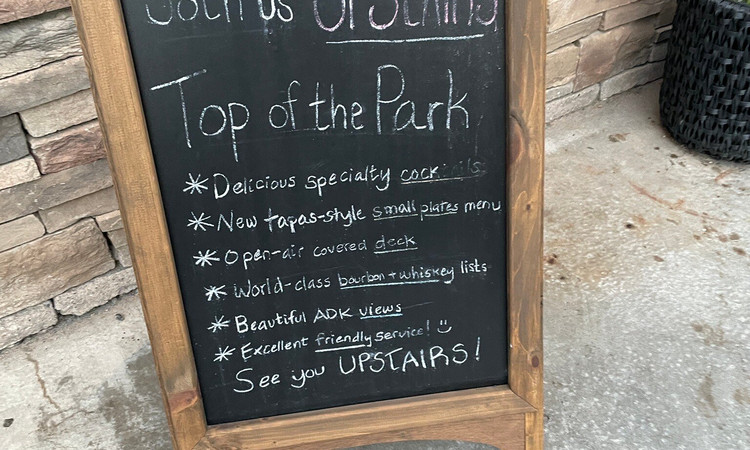 Join us UPSTAIRS
Top of the Park
* Delicious specialty cocktails
* New tapas-style small plates menu
* Open-air covered deck
* World-class bourbon + whiskey lists
* Beautiful ADK views
* Excellent friendly service! :)
See you UPSTAIRS!